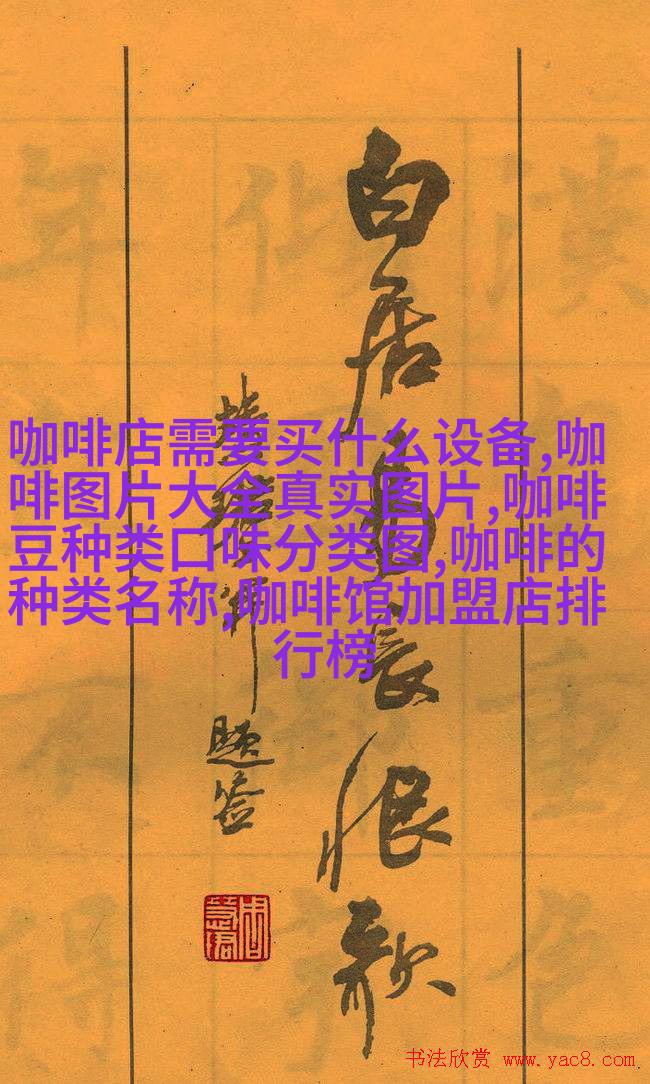 咖啡店需要买什么设备,咖
啡图片大全真实图片,咖啡
豆种类口味分类图,咖啡的
种类名称,咖啡馆加盟店排
行榜
白居易長恨歌
題签
书法欣赏 www.yac8.com